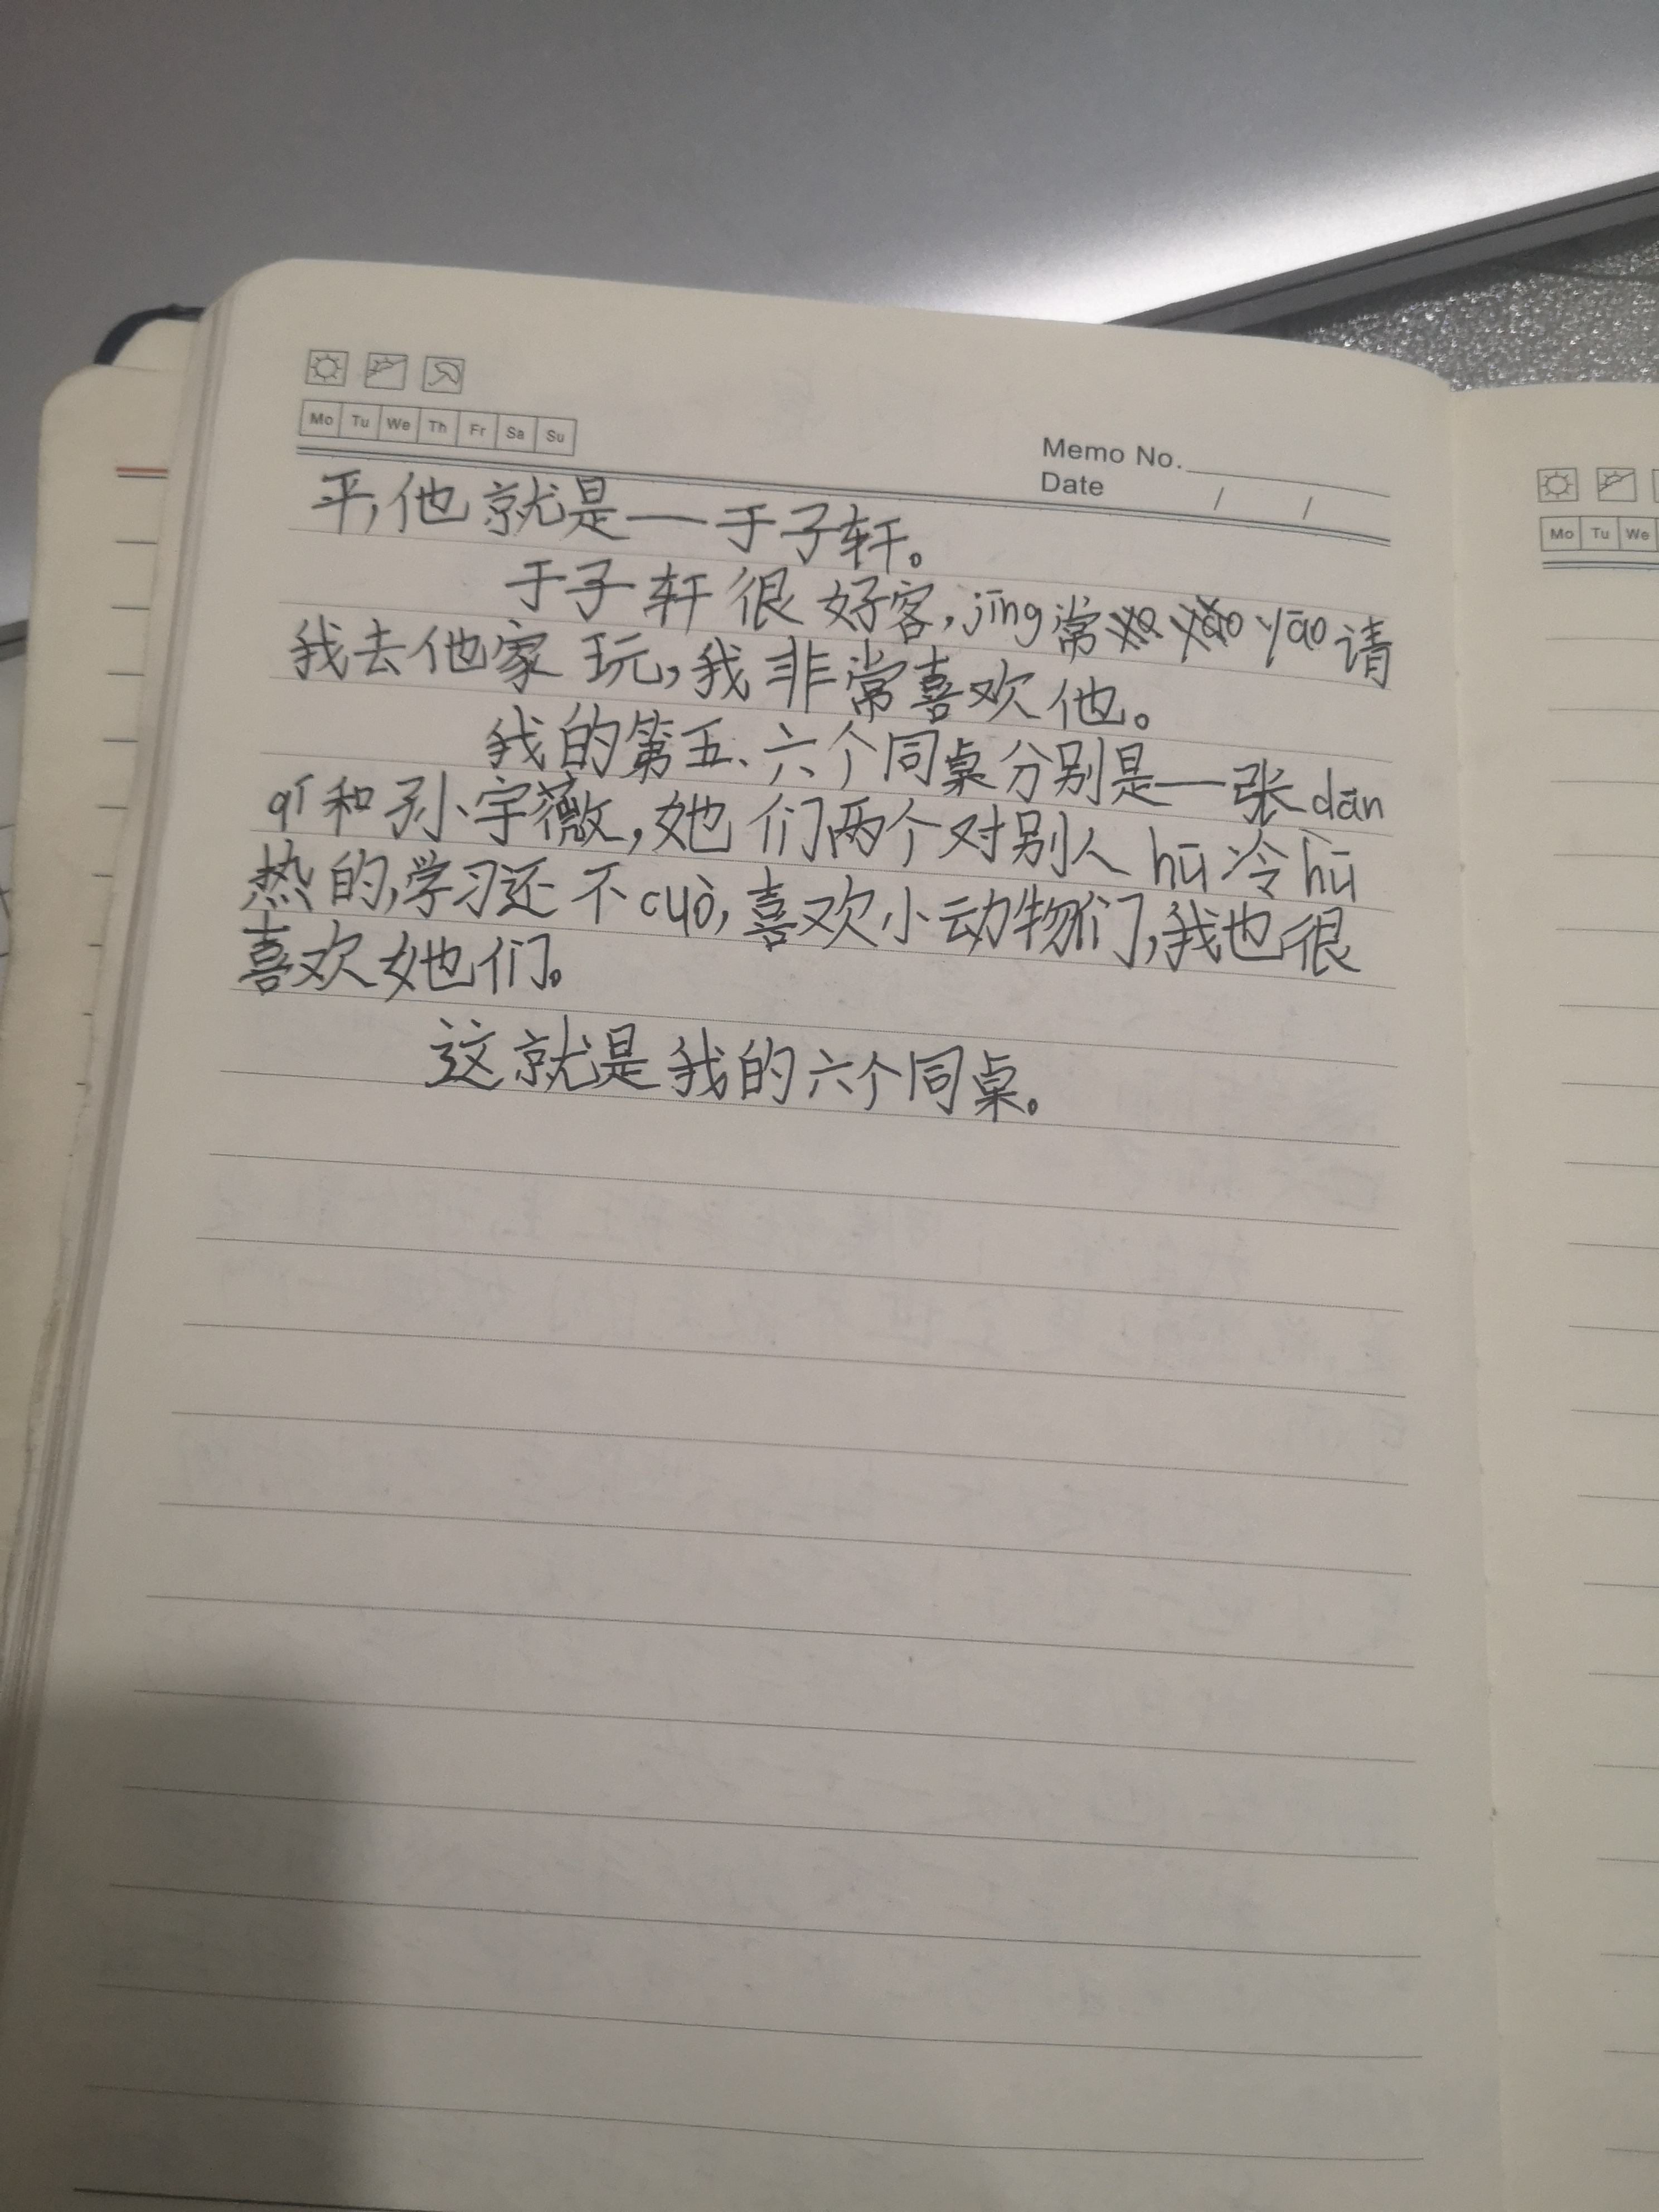 Mo Tu We Th Fr Sa Su
Memo No.
Date / /
平,他就是——于子轩。
于子轩很好客,jīng常yāo请
我去他家玩,我非常喜欢他。
我的第五、六个同桌分别是——张dān
qī和孙宇薇,她们两个对别人hū冷hū
热的,学习还不cuò,喜欢小动物们,我也很
喜欢她们。
这就是我的六个同桌。
Mo Tu We